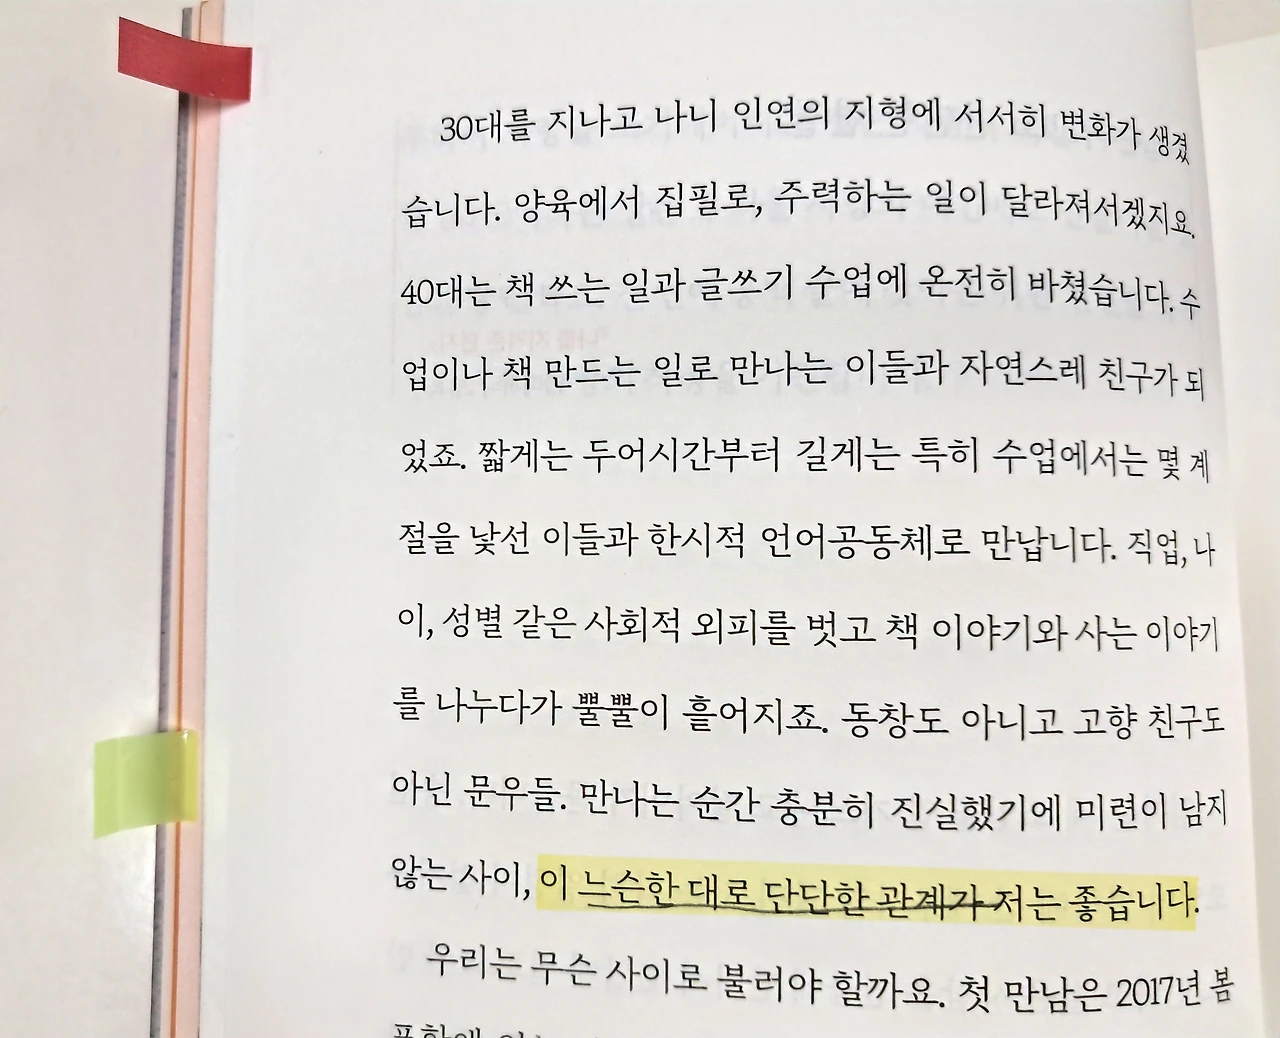 30대를 지나고 나니 인연의 지형에 서서히 변화가 생겼
습니다. 양육에서 집필로, 주력하는 일이 달라져서겠지요.
40대는 책 쓰는 일과 글쓰기 수업에 온전히 바쳤습니다. 수
업이나 책 만드는 일로 만나는 이들과 자연스레 친구가 되
었죠. 짧게는 두어시간부터 길게는 특히 수업에서는 몇 계
절을 낯선 이들과 한시적 언어공동체로 만납니다. 직업, 나
이, 성별 같은 사회적 외피를 벗고 책 이야기와 사는 이야기
를 나누다가 뿔뿔이 흩어지죠. 동창도 아니고 고향 친구도
아닌 문우들. 만나는 순간 충분히 진실했기에 미련이 남지
않는 사이, 이 느슨한 대로 단단한 관계가 저는 좋습니다.
우리는 무슨 사이로 불러야 할까요. 첫 만남은 2017년 봄